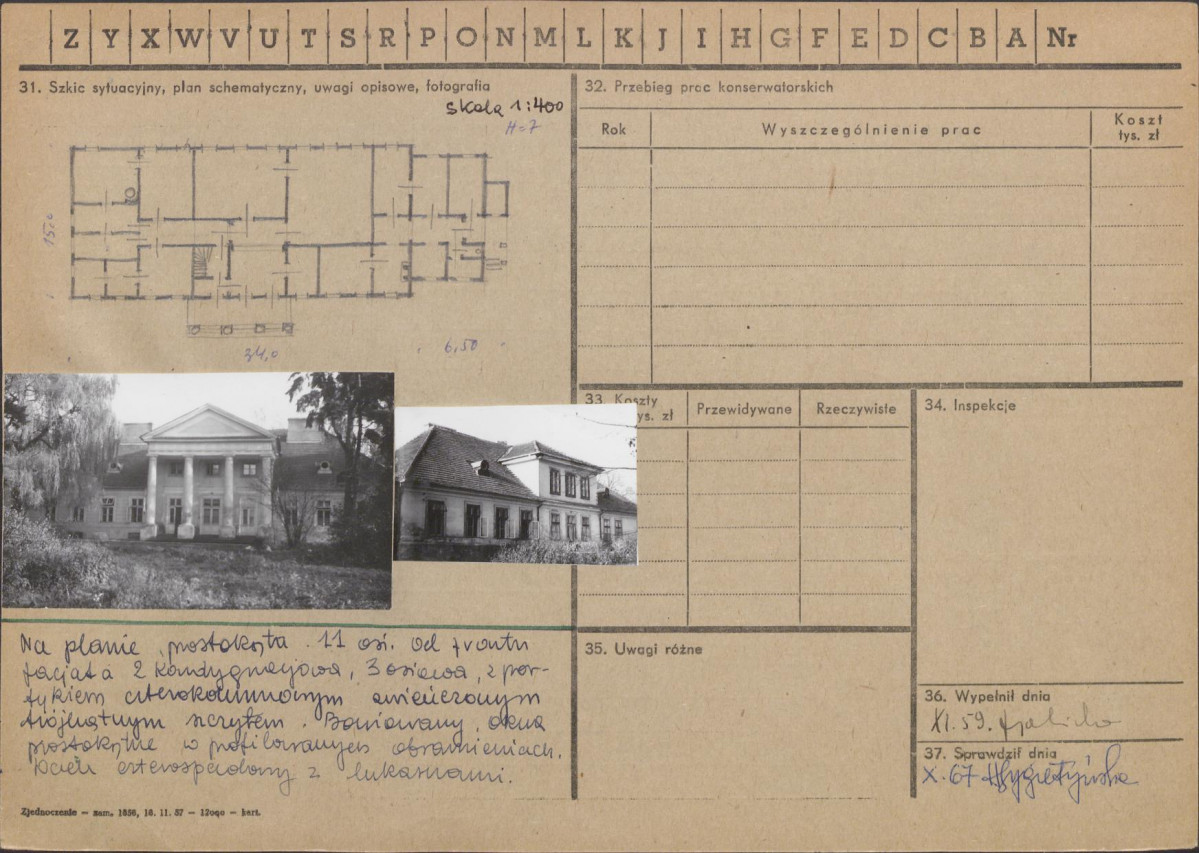 Z Y X W V U T S R P O N M L K J I H G F E D C B A Nr
31. Szkic sytuacyjny, plan schematyczny, uwagi opisowe, fotografia
Skala 1:400
H=7
15,0
34,0
6,50
Na planie prostokąta. 11 osi. Od frontu
facjata 2 kondygnacjowa, 3 osiowa, z por-
tykiem czterokolumnowym zwieńczonym
trójkątnym szczytem. Boniowany, okna
prostokątne w profilowanych obramieniach.
Dach czterospadowy z lukarnami.
Zjednoczenie — zam. 1856, 16. 11. 57 — 12000 — kart.
32. Przebieg prac konserwatorskich
Rok
Wyszczególnienie prac
Koszt
tys. zł
33. Koszty
tys. zł
Przewidywane
Rzeczywiste
34. Inspekcje
35. Uwagi różne
36. Wypełnił dnia
XI. 59.
37. Sprawdził dnia
X. 67